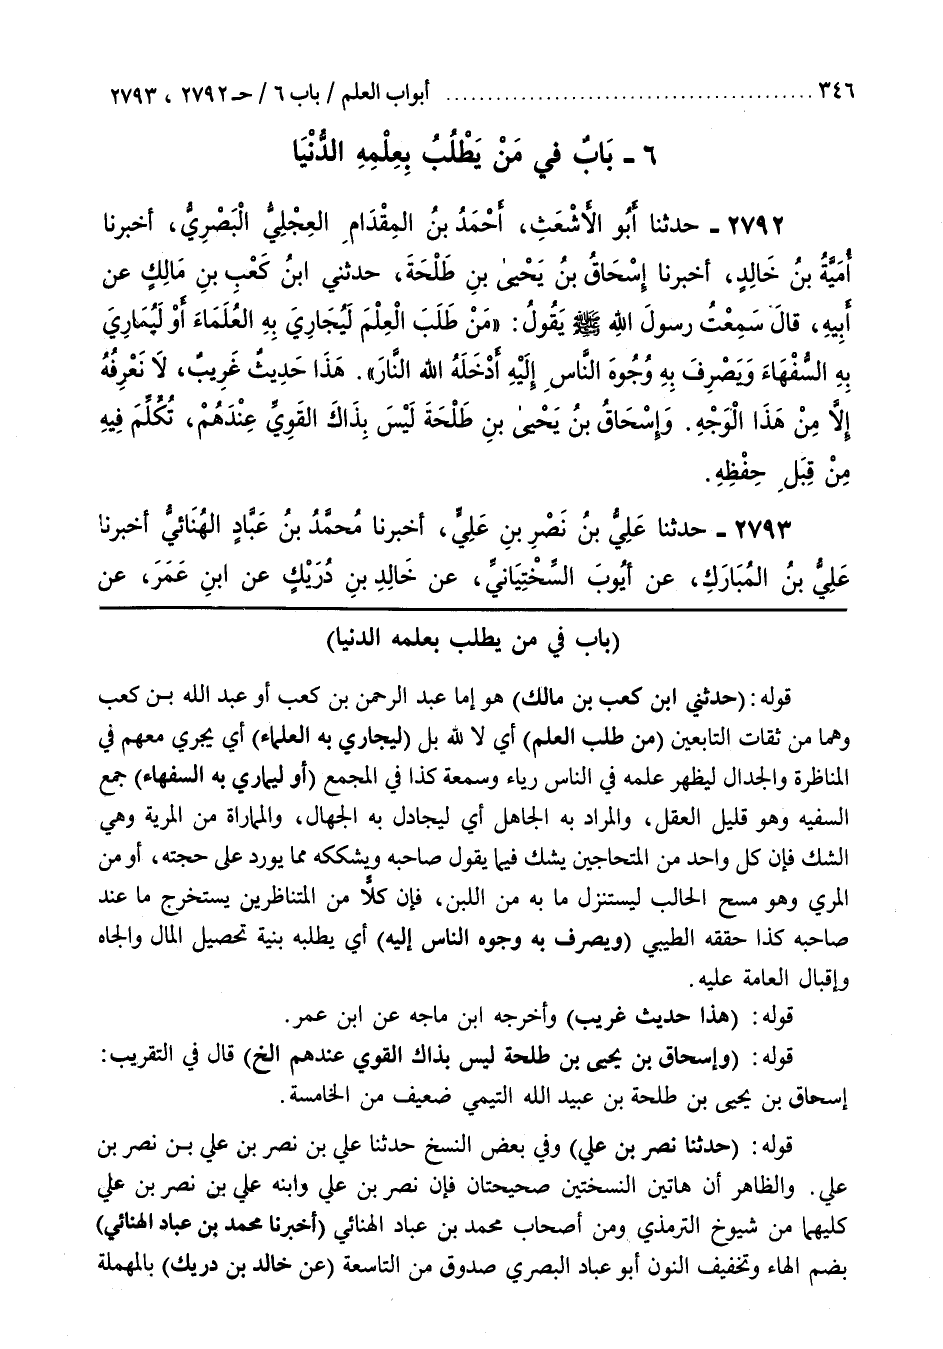 ٣٤٦ ............................................ أبواب العلم / باب ٦ / حـ ٢٧٩٢ ، ٢٧٩٣
٦ ـ بَابٌ في مَنْ يَطْلُبُ بِعِلْمِهِ الدُّنْيَا
٢٧٩٢ ـ حدثنا أَبُو الأَشْعَثِ، أَحْمَدُ بنُ المِقْدَامِ العِجْلِيُّ الْبَصْرِيُّ، أخبرنا
أُمَيَّةُ بنُ خَالِدٍ، أخبرنا إِسْحَاقُ بنُ يَحْيىٰ بنِ طَلْحَةَ، حدثني ابنُ كَعْبِ بنِ مَالِكٍ عن
أَبِيهِ، قالَ سَمِعْتُ رسولَ اللهِ ﷺ يَقُولُ: «مَنْ طَلَبَ الْعِلْمَ لَيُجَارِيَ بِهِ العُلَمَاءَ أَوْ لَيُمَارِيَ
بِهِ السُّفْهَاءَ وَيَصْرِفَ بِهِ وُجُوهَ النَّاسِ إِلَيْهِ أَدْخَلَهُ الله النَّارَ». هَذَا حَدِيثٌ غَرِيبٌ، لَا نَعْرِفُهُ
إِلَّا مِنْ هَذَا الْوَجْهِ. وَإِسْحَاقُ بنُ يَحْيىٰ بنِ طَلْحَةَ لَيْسَ بِذَاكَ القَوِيِّ عِنْدَهُمْ، تُكُلِّمَ فِيهِ
مِنْ قِبَلِ حِفْظِهِ.
٢٧٩٣ ـ حدثنا عَلِيُّ بنُ نَصْرِ بنِ عَلِيٍّ، أخبرنا مُحمَّدُ بنُ عَبَّادٍ الهُنَائِيُّ أخبرنا
عَلِيُّ بنُ المُبَارَكِ، عن أَيُّوبَ السَّخْتِيَانيِّ، عن خَالِدِ بنِ دُرَيْكٍ عن ابنِ عَمَرَ، عن
(باب في من يطلب بعلمه الدنيا)
قوله: (حدثني ابن كعب بن مالك) هو إما عبد الرحمن بن كعب أو عبد الله بـن كعب
وهما من ثقات التابعين (من طلب العلم) أي لا لله بل (ليجاري به العلماء) أي يجري معهم في
المناظرة والجدال ليظهر علمه في الناس رياء وسمعة كذا في المجمع (أو ليماري به السفهاء) جمع
السفيه وهو قليل العقل، والمراد به الجاهل أي ليجادل به الجهال، والمماراة من المرية وهي
الشك فإن كل واحد من المتحاجين يشك فيما يقول صاحبه ويشككه مما يورد على حجته، أو من
المري وهو مسح الحالب ليستنزل ما به من اللبن، فإن كلاًّ من المتناظرين يستخرج ما عند
صاحبه كذا حققه الطيبي (ويصرف به وجوه الناس إليه) أي يطلبه بنية تحصيل المال والجاه
وإقبال العامة عليه.
قوله: (هذا حديث غريب) وأخرجه ابن ماجه عن ابن عمر.
قوله: (وإسحاق بن يحيى بن طلحة ليس بذاك القوي عندهم الخ) قال في التقريب:
إسحاق بن يحيى بن طلحة بن عبيد الله التيمي ضعيف من الخامسة.
قوله: (حدثنا نصر بن علي) وفي بعض النسخ حدثنا علي بن نصر بن علي بـن نصر بن
علي. والظاهر أن هاتين النسختين صحيحتان فإن نصر بن علي وابنه علي بن نصر بن علي
كليهما من شيوخ الترمذي ومن أصحاب محمد بن عباد الهنائي (أخبرنا محمد بن عباد الهنائي)
بضم الهاء وتخفيف النون أبو عباد البصري صدوق من التاسعة (عن خالد بن دريك) بالمهملة